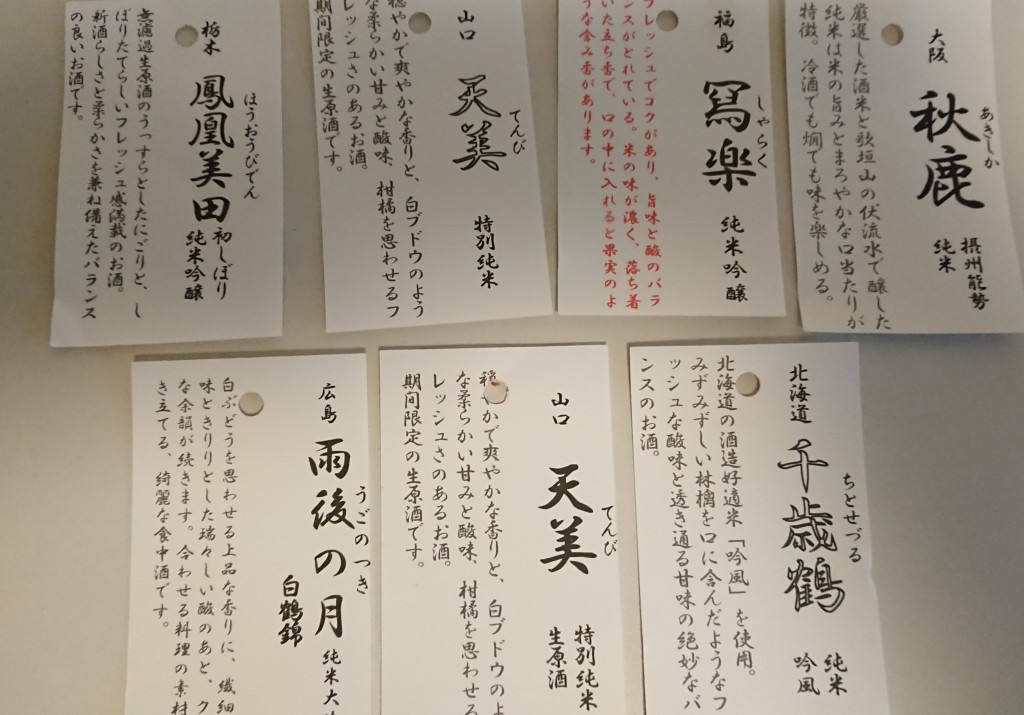 栃木
ほうおうびでん
鳳凰美田
初しぼり
純米吟醸
無濾過生原酒のうっすらとしたにごりと、し
ぼりたてらしいフレッシュ感満載のお酒。
新酒らしさと柔らかさを兼ね備えたバランス
の良いお酒です。
山口
てんび
天美
特別純米
穏やかで爽やかな香りと、白ブドウのよう
な柔らかい甘みと酸味、柑橘を思わせるフ
レッシュさのあるお酒。
期間限定の生原酒です。
福島
しゃらく
冩楽
純米吟醸
フレッシュでコクがあり、旨味と酸のバラ
ンスがとれている。米の味が濃く、落ち着
いた立ち香で、口の中に入れると果実のよ
うな含み香があります。
大阪
あきしか
秋鹿
摂州能勢
純米
厳選した酒米と歌垣山の伏流水で醸した
純米は米の旨みとまろやかな口当たりが
特徴。冷酒でも燗でも味を楽しめる。
広島
うごのつき
雨後の月
純米大
白鶴錦
白ぶどうを思わせる上品な香りに、繊細
味ときりりとした瑞々しい酸のあと、ク
な余韻が続きます。合わせる料理の素材
き立てる、綺麗な食中酒です。
山口
てんび
天美
特別純米
生原酒
穏やかで爽やかな香りと、白ブドウのよ
な柔らかい甘みと酸味、柑橘を思わせる
レッシュさのあるお酒。
期間限定の生原酒です。
北海道
ちとせづる
千歳鶴
純米
吟風
北海道の酒造好適米「吟風」を使用。
みずみずしい林檎を口に含んだようなフ
ッシュな酸味と透き通る甘味の絶妙なバ
ンスのお酒。